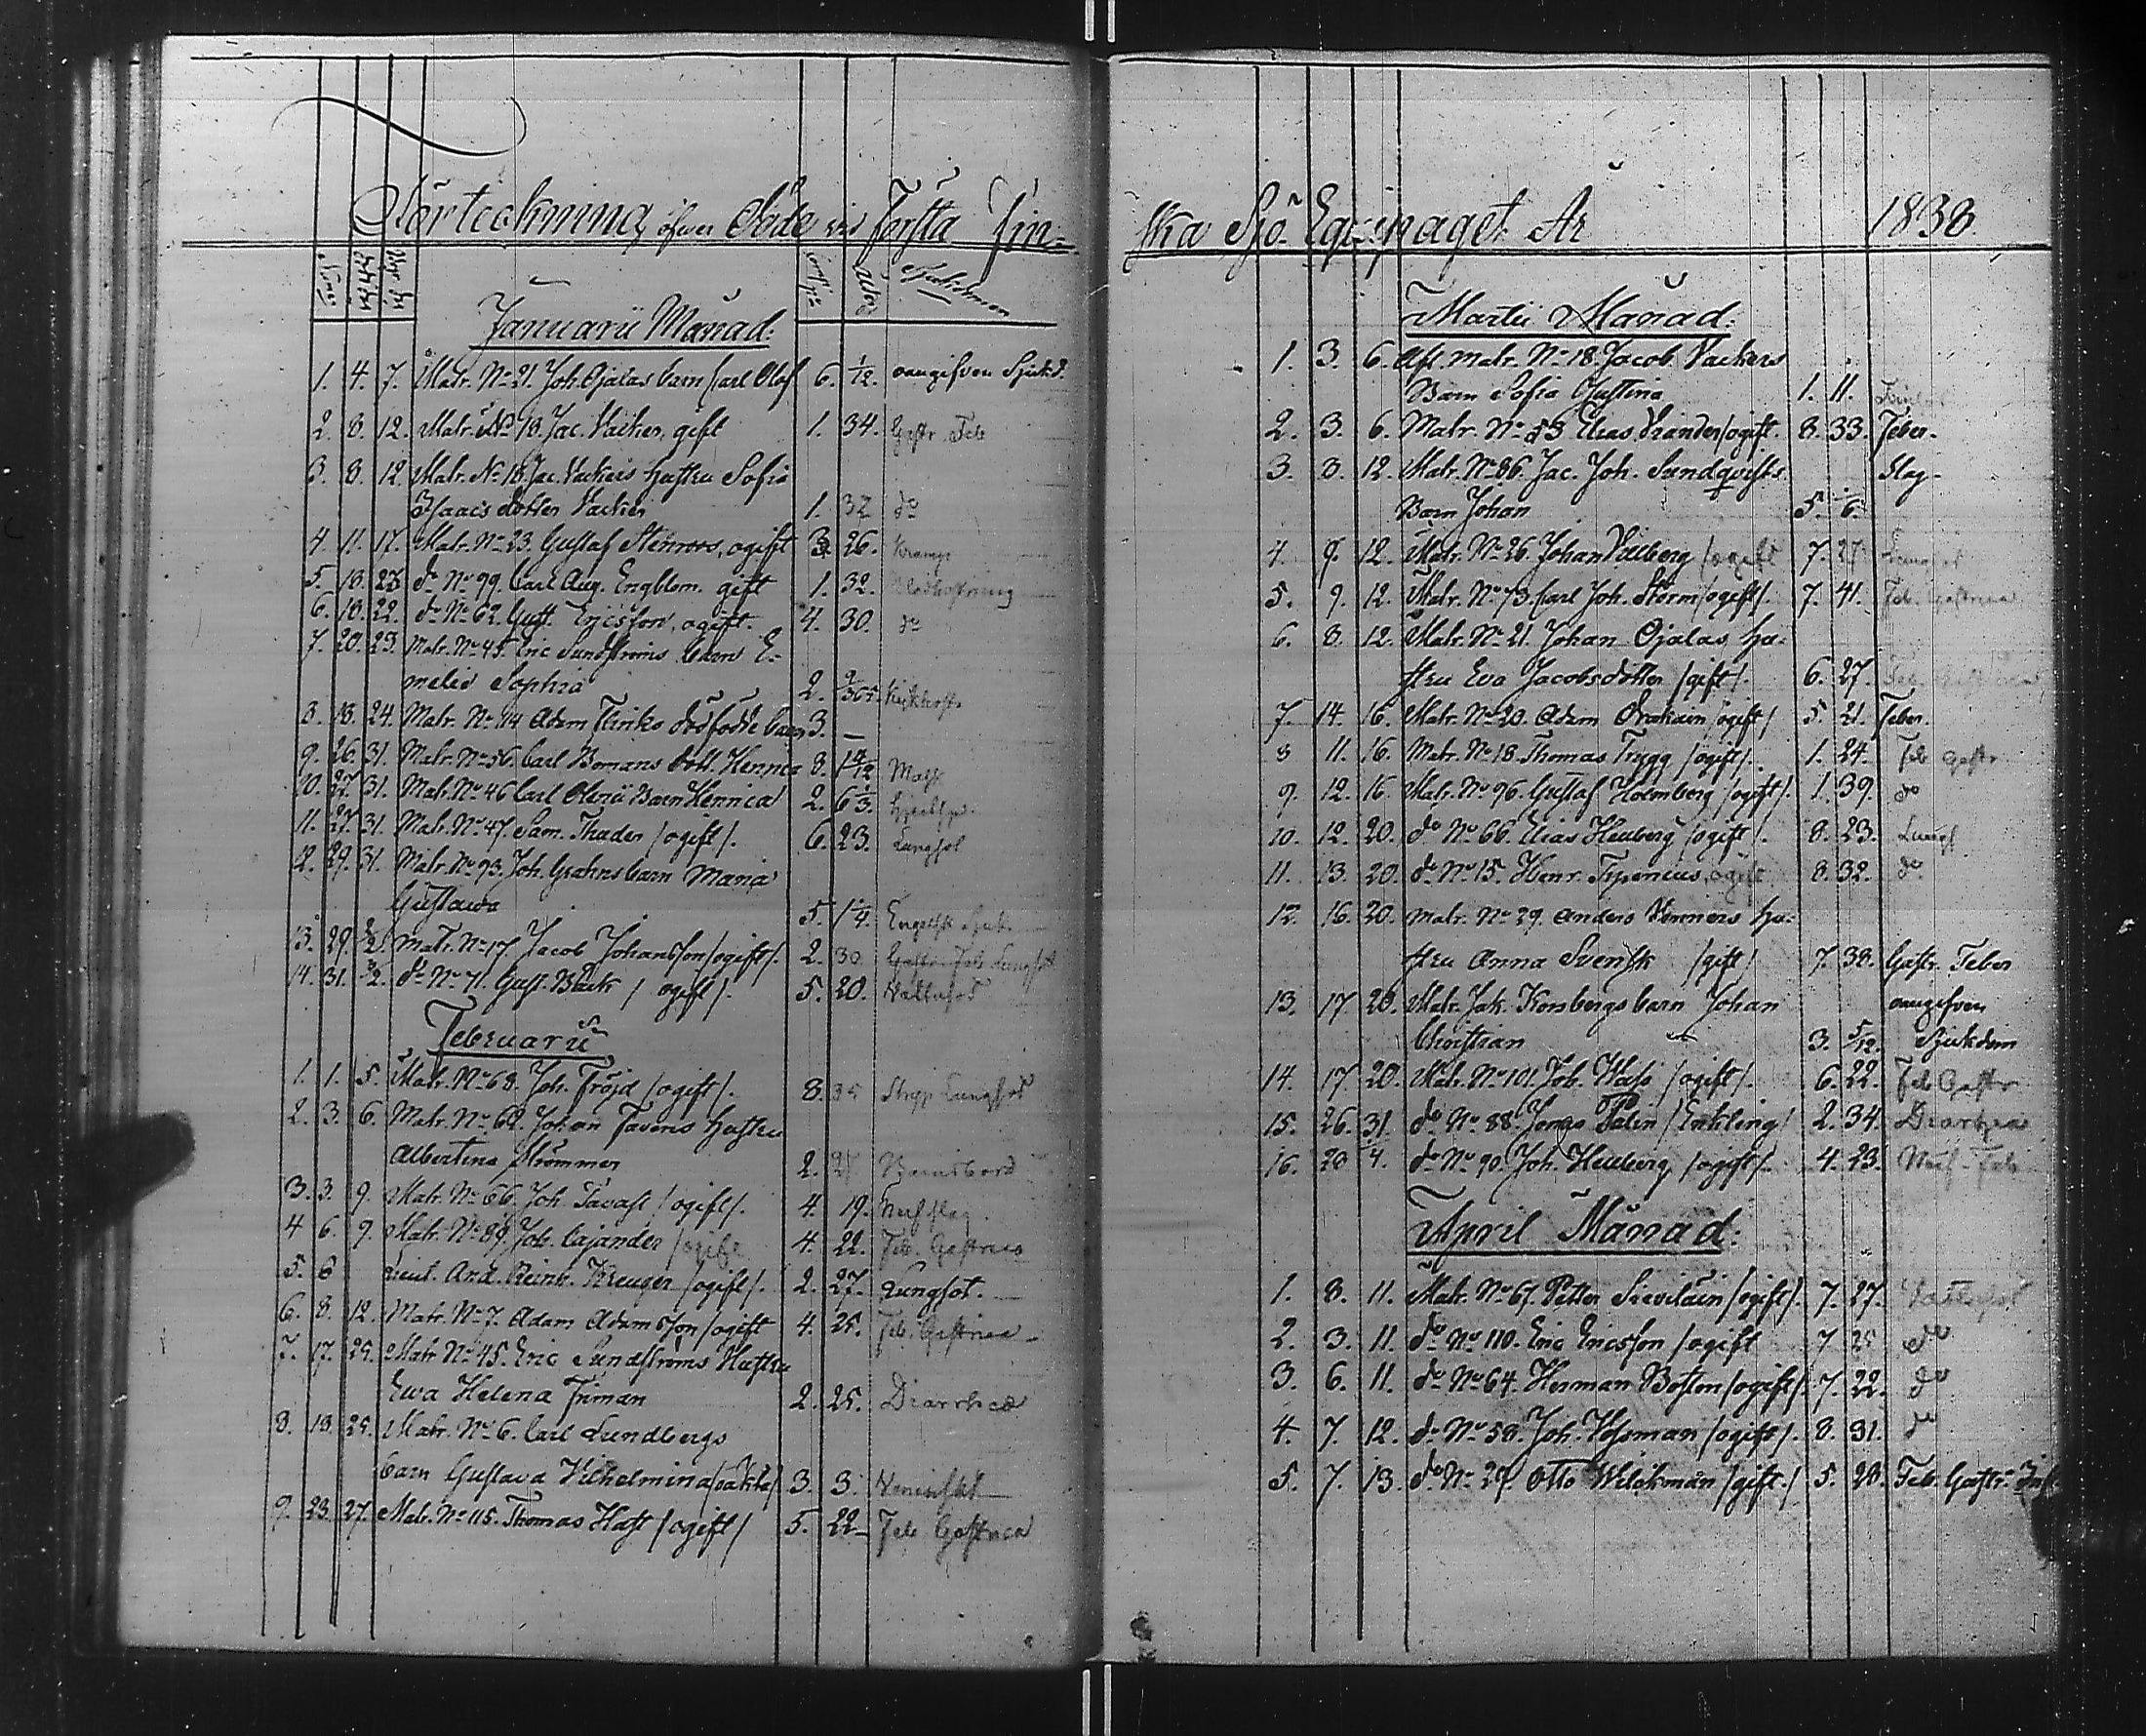 Förteckning öfver Döde vid Första Fin=
Januarii Månad:
1. 4. 7. Matr. No 21. Joh. Ojalas barn Carl Olof 6. 1/12. oangifven Sjukd.
2. 8. 12. Matr. No 18. Jac. Vacker, gift 1. 34. Gastr. Feb
3. 8. 12. Matr. No 18. Jac. Vackers hustru Sofia
Isaacs dotter Vacker 1. 37 do
4. 11. 17. Matr. No 23. Gustaf Stenroos, ogift 3. 26. Kramp
5. 18. 23 do No 99. Carl Aug. Engblom. gift 1. 32.
6. 18. 22. do No 62. Gust. Ericsson, ogift. 4. 30. do
7. 20. 23. Matr. No 45. Eric Sundströms barn E-
melie Sophia 2. 9/365. Kikhosta
8. 18. 24. Matr. No 114 Adam Flinks dödfödde barn 3. —
9. 26. 31. Matr. No 56. Carl Bomans dott. Henrica 8. Mask
10. 27. 31. Matr. No 46 Carl Olenii Barn Henrica 2.
11. 27. 31. Matr. No 47. Sam. Thader /ogift/. 6. 23. Lungsot
12. 29. 31. Matr. No 93. Joh. Grahns barn Maria
Gustawa 5. 1 1/4. Engelsk Sjuk.
13. 29. 2/2. Matr. No 17. Jacob Johansson /ogift/. 2. 30 Gastr. Feb Lungsot
14. 31. 3/2. do No 71. Gust. Bäck / ogift/. 5. 20. Vattusot
Februarii
1. 1. 5. Matr. No 68. Joh. Fröjd /ogift/. 8. 35 Lungsot
2. 3. 6. Matr. No 62. Johan Favens hustru
Albertina Strömmer 2. 27 Barnsbörd
3. 3. 9. Matr. No 66. Joh. Tavast /ogift/. 4. 19. Nerfslag.
4 6 9. Matr. No 89. Joh. Cajander /ogift 4. 22. Feb. Gastrica
5. 6 Lieut. And. Reinh. Kreuger /ogift/. 2. 27. Lungsot.
6. 8. 12. Matr. No 7. Adam Adamsson /ogift 4. 25. Feb. Gastrica
7. 17. 25. Matr No 45. Eric Sundströms Hustru
Ewa Helena Friman 2. 25. Diarrhea
8. 18. 25. Matr. No 6. Carl Lundbergs
barn Gustava Vilhelmina /oäkta/ 3. 3.
9. 23. 27. Matr. No 115. Thomas Hast /ogift/ 5. 22 Feb Gastrica
ska Sjö-Equipaget År 1838.
Martii Månad:
1. 3. 6. Afl. matr. No 18 Jacob Vackers
Barn Sofia Gustina 1. 11.
2. 3. 6. Matr. No 53 Elias Brander /ogift. 8. 33. Feber.
3. 8. 12. Matr. No 86. Jac. Joh. Sundqvists Slag.
Barn Johan 5. 6.
4. 9. 12. Matr. No 26. Johan Villberg /ogift 7. 27 Lungsot
5. 9. 12. Matr. No 73. Carl Joh. Storm /ogift/. 7. 41. Feb. Gastrica
6. 8. 12. Matr. No 21. Johan Ojalas hu-
stru Eva Jacobsdotter /gift/. 6. 27.
7. 14. 16. Matr. No 20. Adam Drakain /ogift/ 5. 21. Feber.
8 11. 16. Matr. No 18. Thomas Trygg /ogift/. 1. 24. Feb Gastr.
9. 12. 16. Matr. No 96. Gustaf Holmberg /ogift/. 1. 39. do
10. 12. 20. do No 66. Elias Heuberg /ogift/. 8. 23. Lungs
11. 13. 20. do No 15. Henr. Typenius, ogift 8. 32. do
12. 16. 20. matr. No 29. Anders Venners hu-
stru Anna Svensk /gift/ 7. 38. Gastr. Feber
13. 17. 20. Matr. Jak. Korsbergs barn Johan oangifven
Christian 3. 5/12. Sjukdom
14. 17. 20. Matr. No 101. Job. Wass /ogift/. 6. 22. Feb Gastr
15. 26. 31. do No 88. Jonas Palin /Enkling/ 2. 34. Diarhea
16. 28 4. do No 90. Joh. Heuberg /ogift/. 4. 23. Nerf-Feb
April Månad:
1. 3. 11. Matr. No 67. Petter Sievilain /ogift/. 7. 27. Vattusot
2. 3. 11. do No 110. Eric Ericsson /ogift 7 25 do
3. 6. 11. do No 64. Herman Boston /ogift/. 7. 22. do
4. 7. 12. do No 58. Joh. Vossman /ogift/. 8. 31. do
5. 7. 13. do No 29. Otto Welchman /gift./ 5. 28. Feb. Gastr.